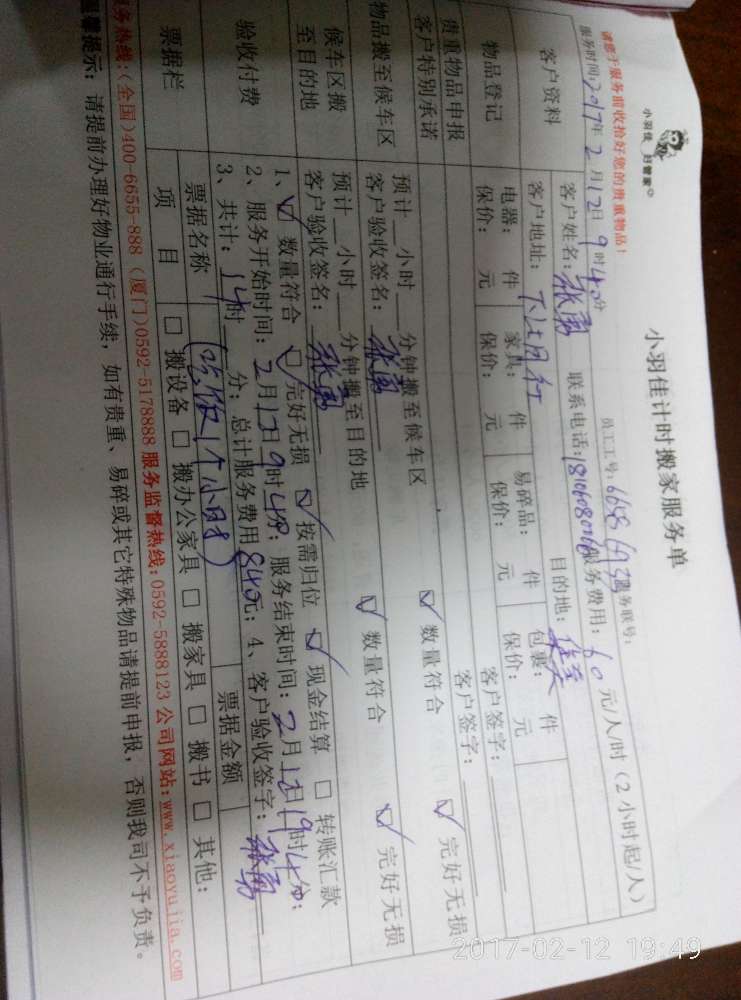 小羽佳 好管家
小羽佳计时搬家服务单
请您于服务前收拾好您的贵重物品!
员工工号:
服务联号:
服务时间:2017年2月12日9时40分
服务费用:60元/人/时(2小时起/人)
客户资料
客户姓名:张勇
联系电话:
客户地址:
目的地:
物品登记
电器: 件 家具: 件 易碎品: 件 包裹: 件
保价: 元 保价: 元 保价: 元 保价: 元
贵重物品申报
客户签字:
客户特别承诺
客户签字:
物品搬至候车区
预计 小时 分钟搬至候车区
客户验收签名:张勇
数量符合
完好无损
候车区搬至目的地
预计 小时 分钟搬至目的地
客户验收签名:张勇
数量符合
完好无损
验收付费
1、 数量符合 完好无损 按需归位 现金结算 转账汇款
2、服务开始时间:2月12日9时4分;服务结束时间:2月12日19时4分;
3、共计:14时 分;总计服务费用840元;4、客户验收签字:张勇
(吃饭1个小时)
票据栏
票据名称
票据金额
项目
搬设备 搬办公家具 搬家具 搬书 其他:
服务热线:(全国)400-6655-888 (厦门)0592-5178888 服务监督热线:0592-5888123 公司网站:www.xiaoyujia.com
温馨提示:请提前办理好物业通行手续,如有贵重、易碎或其它特殊物品请提前申报,否则我司不予负责。
2017-02-12 19:49